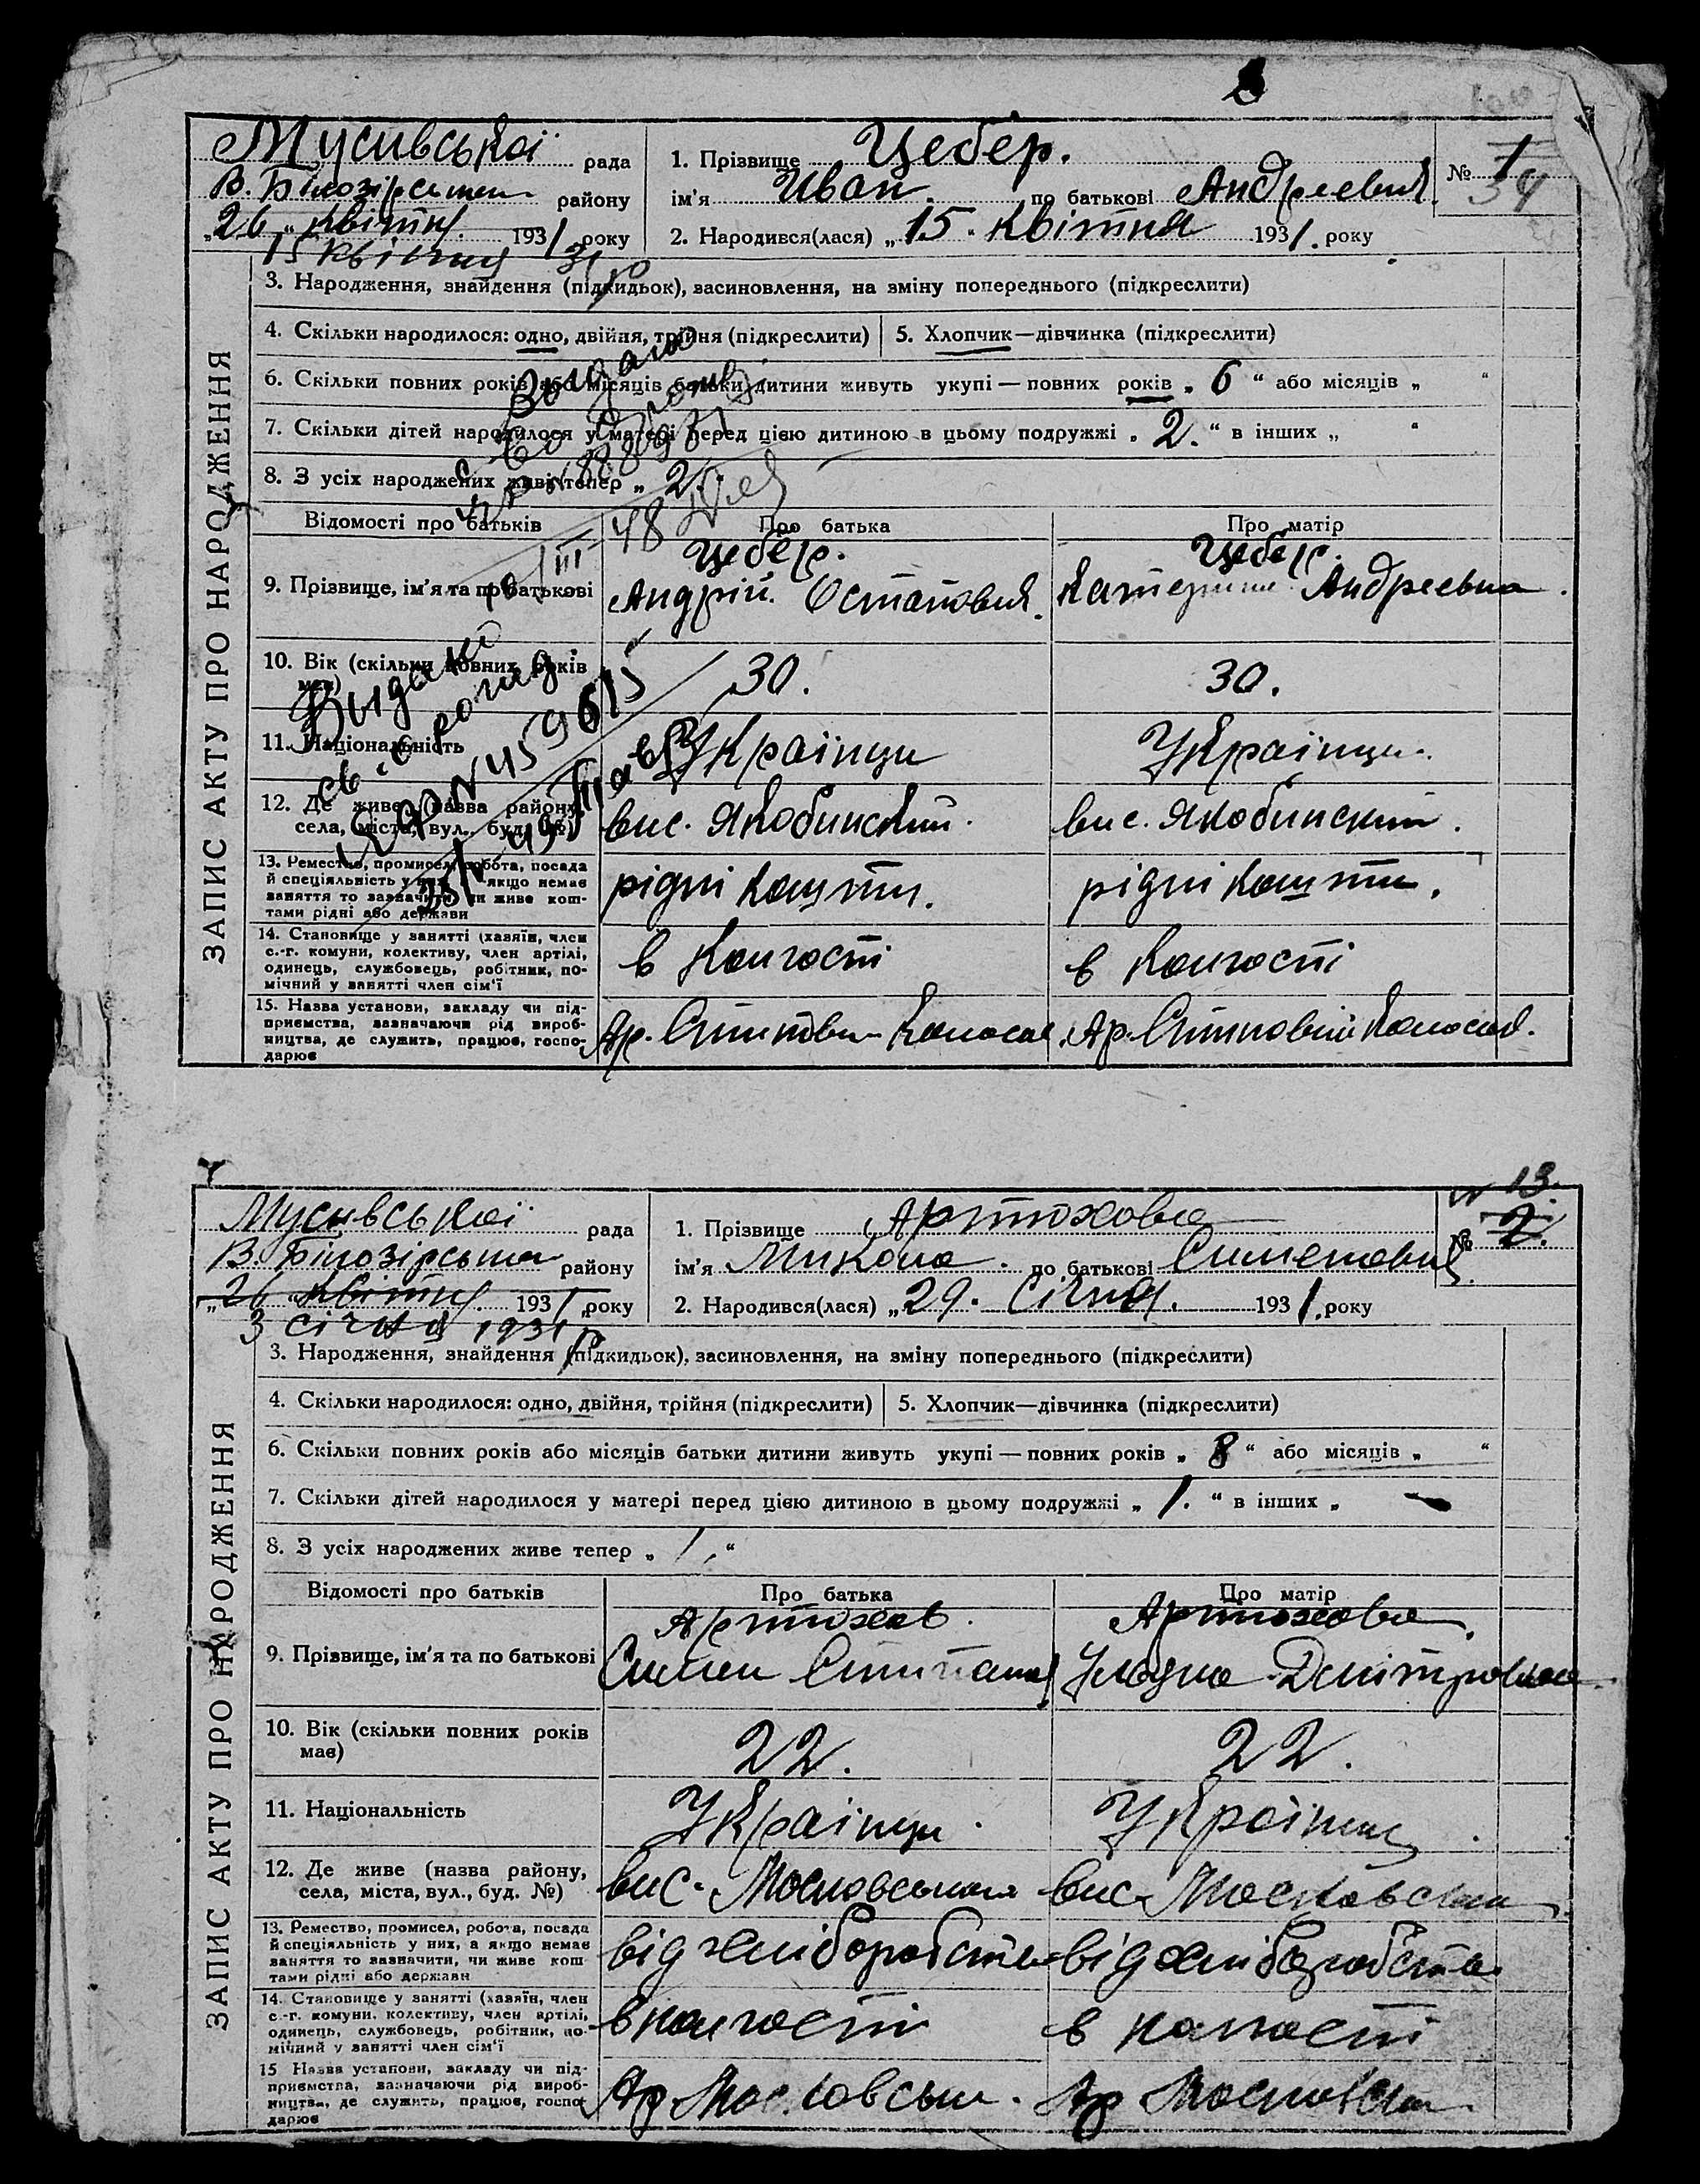 Мусивської рада
В. Білозірсько району
„26„ Квітня 1931 року
15 квітня 31 р
1. Прізвище Цебер.
ім'я Иван. по батькові Андреевич.
2. Народився(лася) „15. Квітня 1931. року
№ 1
34
ЗАПИС АКТУ ПРО НАРОДЖЕННЯ
3. Народження, знайдення (підкидьок), засиновлення, на зміну попереднього (підкреслити)
4. Скільки народилося: одно, двійня, трійня (підкреслити) 5. Хлопчик—дівчинка (підкреслити)
6. Скільки повних років або місяців батьки дитини живуть укупі — повних років „ 6 “ або місяців „ “
7. Скільки дітей народилося у матері перед цією дитиною в цьому подружжі „ 2. “ в інших „ “
8. З усіх народжених живе тепер „ 2.
Відомості про батьків Про батька Про матір
9. Прізвище, ім'я та по батькові
Цебер. Андрій Остапович.
Цебер. Катерина Андреевна.
10. Вік (скільки повних років має) 30. 30.
11. Національність Українци Українци.
12. Де живе (назва району, села, міста, вул., буд. №) вис. Якобинский. вис. Якобинский.
13. Ремество, промисел, робота, посада й спеціяльність у них, а якщо немає заняття то зазначити, чи живе коштами рідні або держави
рідні кошти. рідні кошти.
14. Становище у занятті (хазяїн, член с.-г. комуни, колективу, член артілі, одинець, службовець, робітник, помічний у занятті член сім'ї
в Колгоспі в Колгоспі
15. Назва установи, закладу чи підприємства, зазначаючи рід виробництва, де служить, працює, господарює
Ар. Ар.
Мусивської рада
В. Білозірська району
„26 Квітня 1931 року
3 січня 1931 р
1. Прізвище Артюхова
ім'я Микола. по батькові Сименович.
2. Народився(лася) „29. Січня. 1931. року
N 13.
№ 2.
ЗАПИС АКТУ ПРО НАРОДЖЕННЯ
3. Народження, знайдення (підкидьок), засиновлення, на зміну попереднього (підкреслити)
4. Скільки народилося: одно, двійня, трійня (підкреслити) 5. Хлопчик—дівчинка (підкреслити)
6. Скільки повних років або місяців батьки дитини живуть укупі — повних років „ 8 “ або місяців „ “
7. Скільки дітей народилося у матері перед цією дитиною в цьому подружжі „ 1. “ в інших „ –
8. З усіх народжених живе тепер „ 1. “
Відомості про батьків Про батька Про матір
9. Прізвище, ім'я та по батькові
Артюхов. Симен
Артюхова. Дмітровна
10. Вік (скільки повних років має) 22. 22.
11. Національність Українци. Українци.
12. Де живе (назва району, села, міста, вул., буд. №) вис. Московський вис. Московський
13. Ремество, промисел, робота, посада й спеціяльність у них, а якщо немає заняття то зазначити, чи живе коштами рідні або держави
від хліборобства від хліборобства
14. Становище у занятті (хазяїн, член с.-г. комуни, колективу, член артілі, одинець, службовець, робітник, помічний у занятті член сім'ї
в колгоспі в колгоспі
15 Назва установи, закладу чи підприємства, зазначаючи рід виробництва, де служить, працює, господарює
Ар Московськи. Ар Московськи.